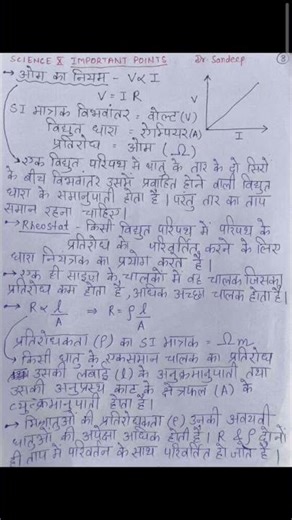 SCIENCE X IMPORTANT POINTS Dr. Sandeep 3
→ ओम का नियम - V∝I
V = I R
SI मात्रक विभवांतर = वोल्ट (V)
विद्युत धारा = ऐम्पियर (A)
प्रतिरोध = ओम (Ω)
V
I
→ एक विद्युत परिपथ में धातु के तार के दो सिरों
के बीच विभवांतर उसमें प्रवाहित होने वाली विद्युत
धारा के समानुपाती होता है। परंतु तार का ताप
समान रहना चाहिए।
→ Rheostat - किसी विद्युत परिपथ में परिपथ के
प्रतिरोध को परिवर्तित करने के लिए
धारा नियंत्रक का प्रयोग करते है।
→ एक ही साइज के चालकों में वह चालक जिसका
प्रतिरोध कम होता है, अधिक अच्छा चालक होता है।
→ R ∝ l/A ⇒ R = ρ l/A
प्रतिरोधकता (ρ) का SI मात्रक = Ωm
→ किसी धातु के एकसमान चालक का प्रतिरोध
उसकी लंबाई (l) के अनुक्रमानुपाती तथा
उसकी अनुप्रस्थ काट के क्षेत्रफल (A) के
व्युत्क्रमानुपाती होता है।
→ मिश्रातुओं की प्रतिरोधकता (ρ) उनकी अवयवी
धातुओं की अपेक्षा अधिक होती है। R & ρ दोनों
ही ताप में परिवर्तन के साथ परिवर्तित हो जाते है।